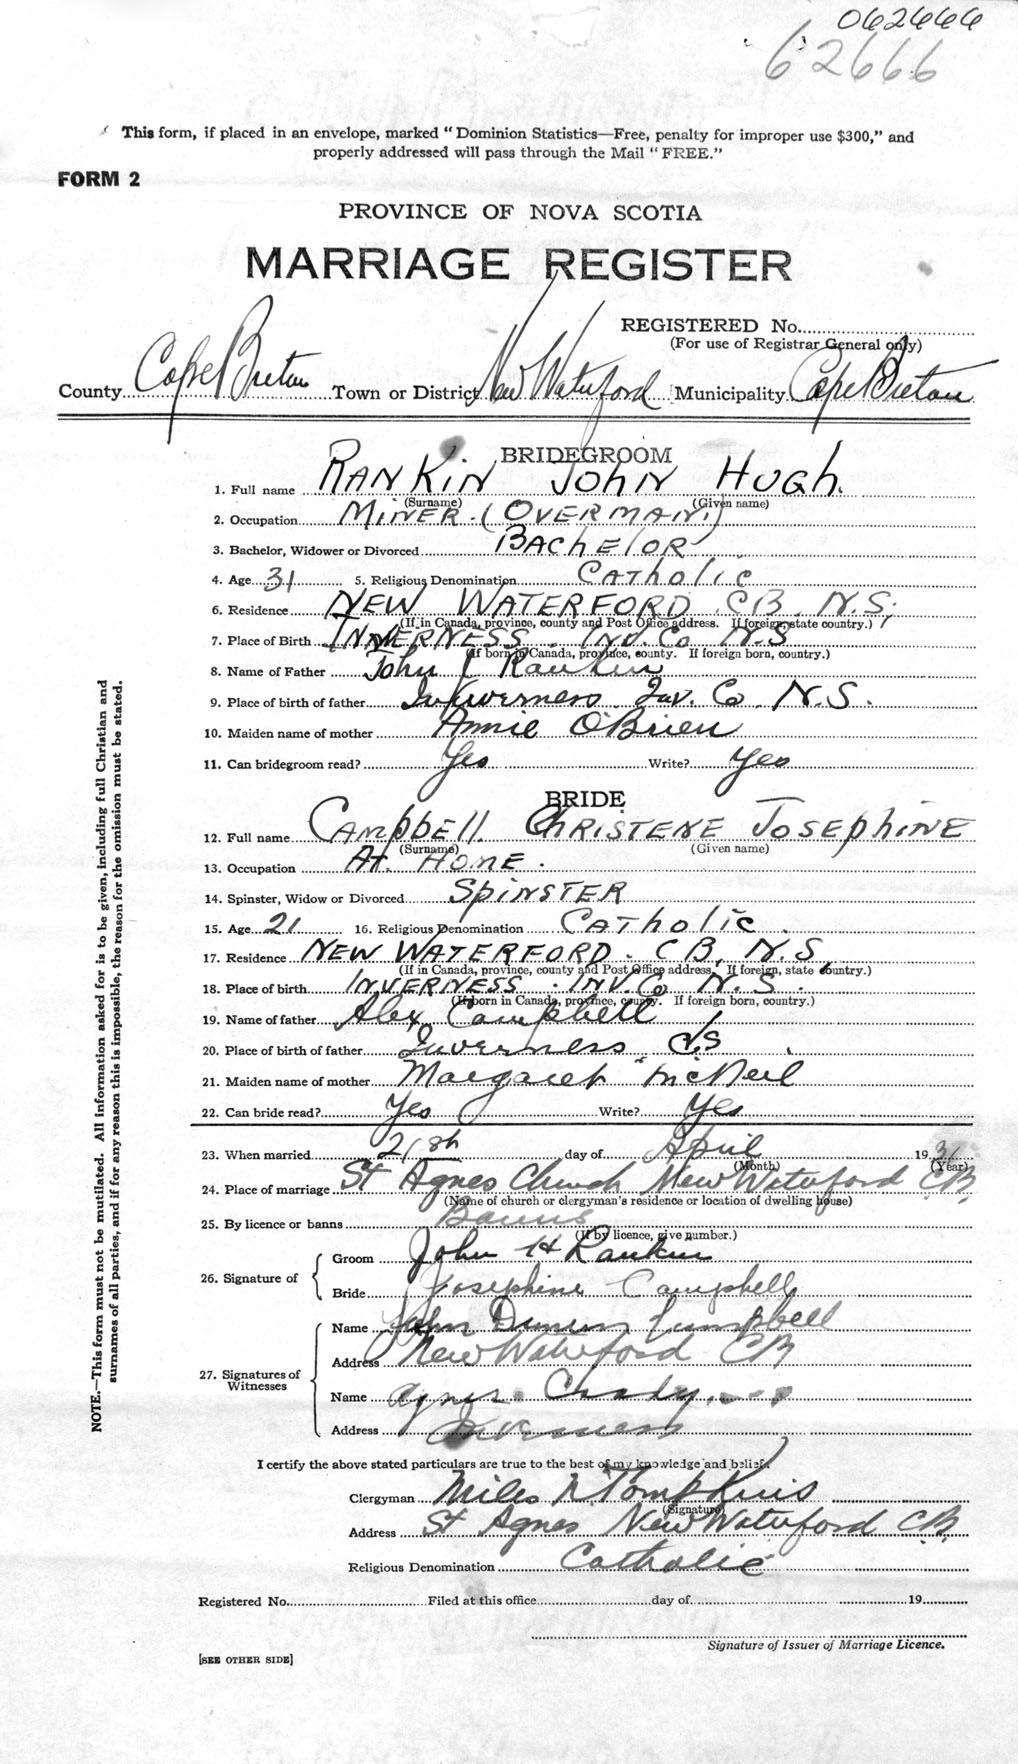 062666
62666
This form, if placed in an envelope, marked "Dominion Statistics—Free, penalty for improper use $300," and
properly addressed will pass through the Mail "FREE."
FORM 2
PROVINCE OF NOVA SCOTIA
MARRIAGE REGISTER
REGISTERED No.
(For use of Registrar General only)
County Cape Breton Town or District New Waterford Municipality Cape Breton
BRIDEGROOM
1. Full name RANKIN JOHN HUGH.
(Surname) (Given name)
2. Occupation MINER. (OVERMAN)
3. Bachelor, Widower or Divorced BACHELOR
4. Age 31 5. Religious Denomination CATHOLIC
6. Residence NEW WATERFORD. CB. N.S.
(If in Canada, province, county and Post Office address. If foreign, state country.)
7. Place of Birth INVERNESS. INV. Co N-S
(If born in Canada, province, county. If foreign born, country.)
8. Name of Father John Rankin
9. Place of birth of father Inverness Inv. Co N.S.
10. Maiden name of mother Annie O'Brien
11. Can bridegroom read? Yes Write? Yes
BRIDE
12. Full name CAMPBELL. CHRISTENE JOSEPHINE
(Surname) (Given name)
13. Occupation At. HOME.
14. Spinster, Widow or Divorced SPINSTER
15. Age 21 16. Religious Denomination CATHOLIC.
17. Residence NEW WATERFORD. CB, N.S
(If in Canada, province, county and Post Office address. If foreign, state country.)
18. Place of birth INVERNESS. INV. Co N.S.
(If born in Canada, province, county. If foreign born, country.)
19. Name of father Alex Campbell
20. Place of birth of father Inverness
21. Maiden name of mother Margaret McNeil
22. Can bride read? Yes Write? Yes
23. When married day of April 1931
(Month) (Year)
24. Place of marriage St Agnes Church New Waterford CB
(Name of church or clergyman's residence or location of dwelling house)
25. By licence or banns Banns
(If by licence, give number.)
26. Signature of Groom John H Rankin
Bride Josephine Campbell
27. Signatures of Witnesses Name John Campbell
Address New Waterford CB
Name Agnes
Address Inverness
I certify the above stated particulars are true to the best of my knowledge and belief.
Clergyman Miles N Tompkins
(Signature)
Address St Agnes New Waterford CB
Religious Denomination Catholic
Registered No. Filed at this office day of 19
Signature of Issuer of Marriage Licence.
[SEE OTHER SIDE]
NOTE.—This form must not be mutilated. All information asked for is to be given, including full Christian and
surnames of all parties, and if for any reason this is impossible, the reason for the omission must be stated.